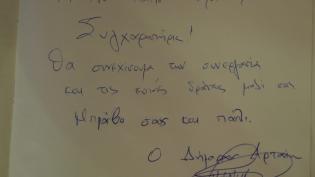 Συγχαρητήρια!
Θα συνεχίσουμε την συνεργασία
και τις κοινές δράσεις μαζί σας
Μπράβο σας και πάλι.
Ο Δήμαρχος